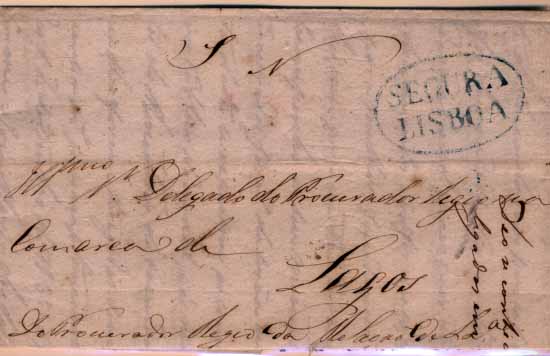 S N
SEGURA
LISBOA
Illmo Sr. Delegado do Procurador Regio na
Comarca de
Lagos
Do Procurador Regio da Relação de